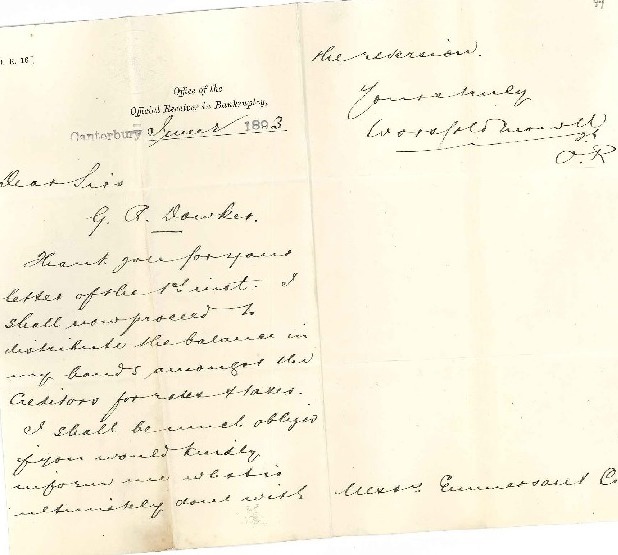 Office of the
Official Receiver in Bankruptcy,
Canterbury June 1893
Dear Sirs
G. R. Dowker.
Thank you for your
letter of the 1st inst. I
shall now proceed to
distribute the balance in
my hands amongst the
Creditors for rates & taxes.
I shall be much obliged
if you would kindly
inform me what is
ultimately done with
Messrs Emmerson & Co
the reversion.
Yours truly
Worsfold Mowll
O.R